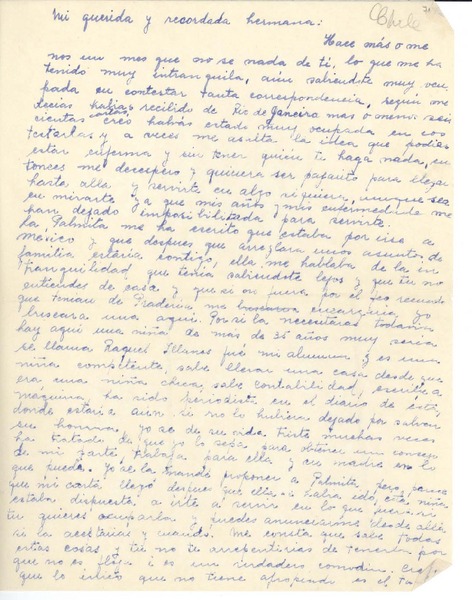 Chile 71
Mi querida y recordada hermana:
Hace más o me
nos un mes que no se nada de ti, lo que me ha
tenido muy intranquila, aún sabiendote muy ocu
pada en contestar tanta correspondencia, según me
decías habías recibido de Río de Janeiro mas o menos seis
cientas cartas creo habrás estado muy ocupada en con
testarlas y a veces me asalta la idea que podías
estar enferma y sin tener quien te haga nada, en
tonces me desespero y quisiera ser pajarito para llegar
hasta allá y servirte en algo siquiera, aunque sea
en mirarte ya que mis años y mis enfermedades me
han dejado imposibilitada para servirte.
La Palmita me ha escrito que estaba por irse a
México y que despues que arreglara unos asuntos de
familia estaría contigo, ella me hablaba de la in
tranquilidad que tenía sabiendote lejos y que tu no
entiendes de casa y que si no fuera por el feo recuerdo
que tenían de Praderia me encargaría yo
buscara una aquí. Por si la necesitaras todavía
hay aquí una niña de mas de 35 años muy seria
se llama Raquel Illanes fué mi alumna y es una
niña competente, sabe llevar una casa desde que
era una niña chica, sabe contabilidad, escribe a
maquina, ha sido periodista en el diario de ésta,
donde estaría aún si no lo hubiera dejado por salvar
su honra, yo se de su vida. Fíjate muchas veces
ha tratado de que yo lo sepa para obtener un consejo
de mi parte, trabaja para ella y su madre en lo
que puede. Yo se la mandé proponer a Palmita, pero, parece
que mi carta llegó despues que ella había ido, esta niña
estaba dispuesta a irte a servir en lo que fuera si
tu quieres ocuparla y puedes anunciarme desde allá
si la aceptarías y cuando. Me consta que sabe todas
estas cosas y tu no te arrepentirías de tenerla por
que no es floja i es un verdadero comodín. Creo
que lo único que no tiene aprendido es el